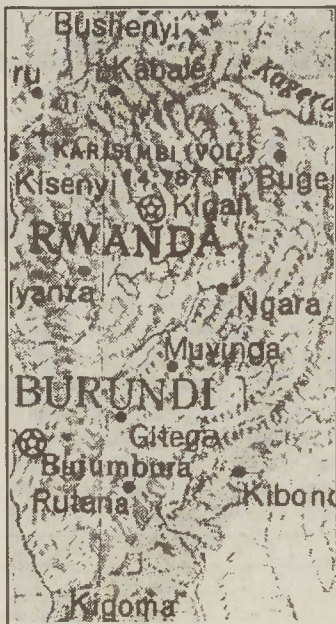 Bushenyi
ru Kabale Kagera
KARISIMBI (VOL.)
Kisenyi 14,787 FT. Buge
Kigali
RWANDA
lyanza
Ngara
Muyinga
BURUNDI
Gitega
Bujumbura
Rutana Kibond
Kigoma